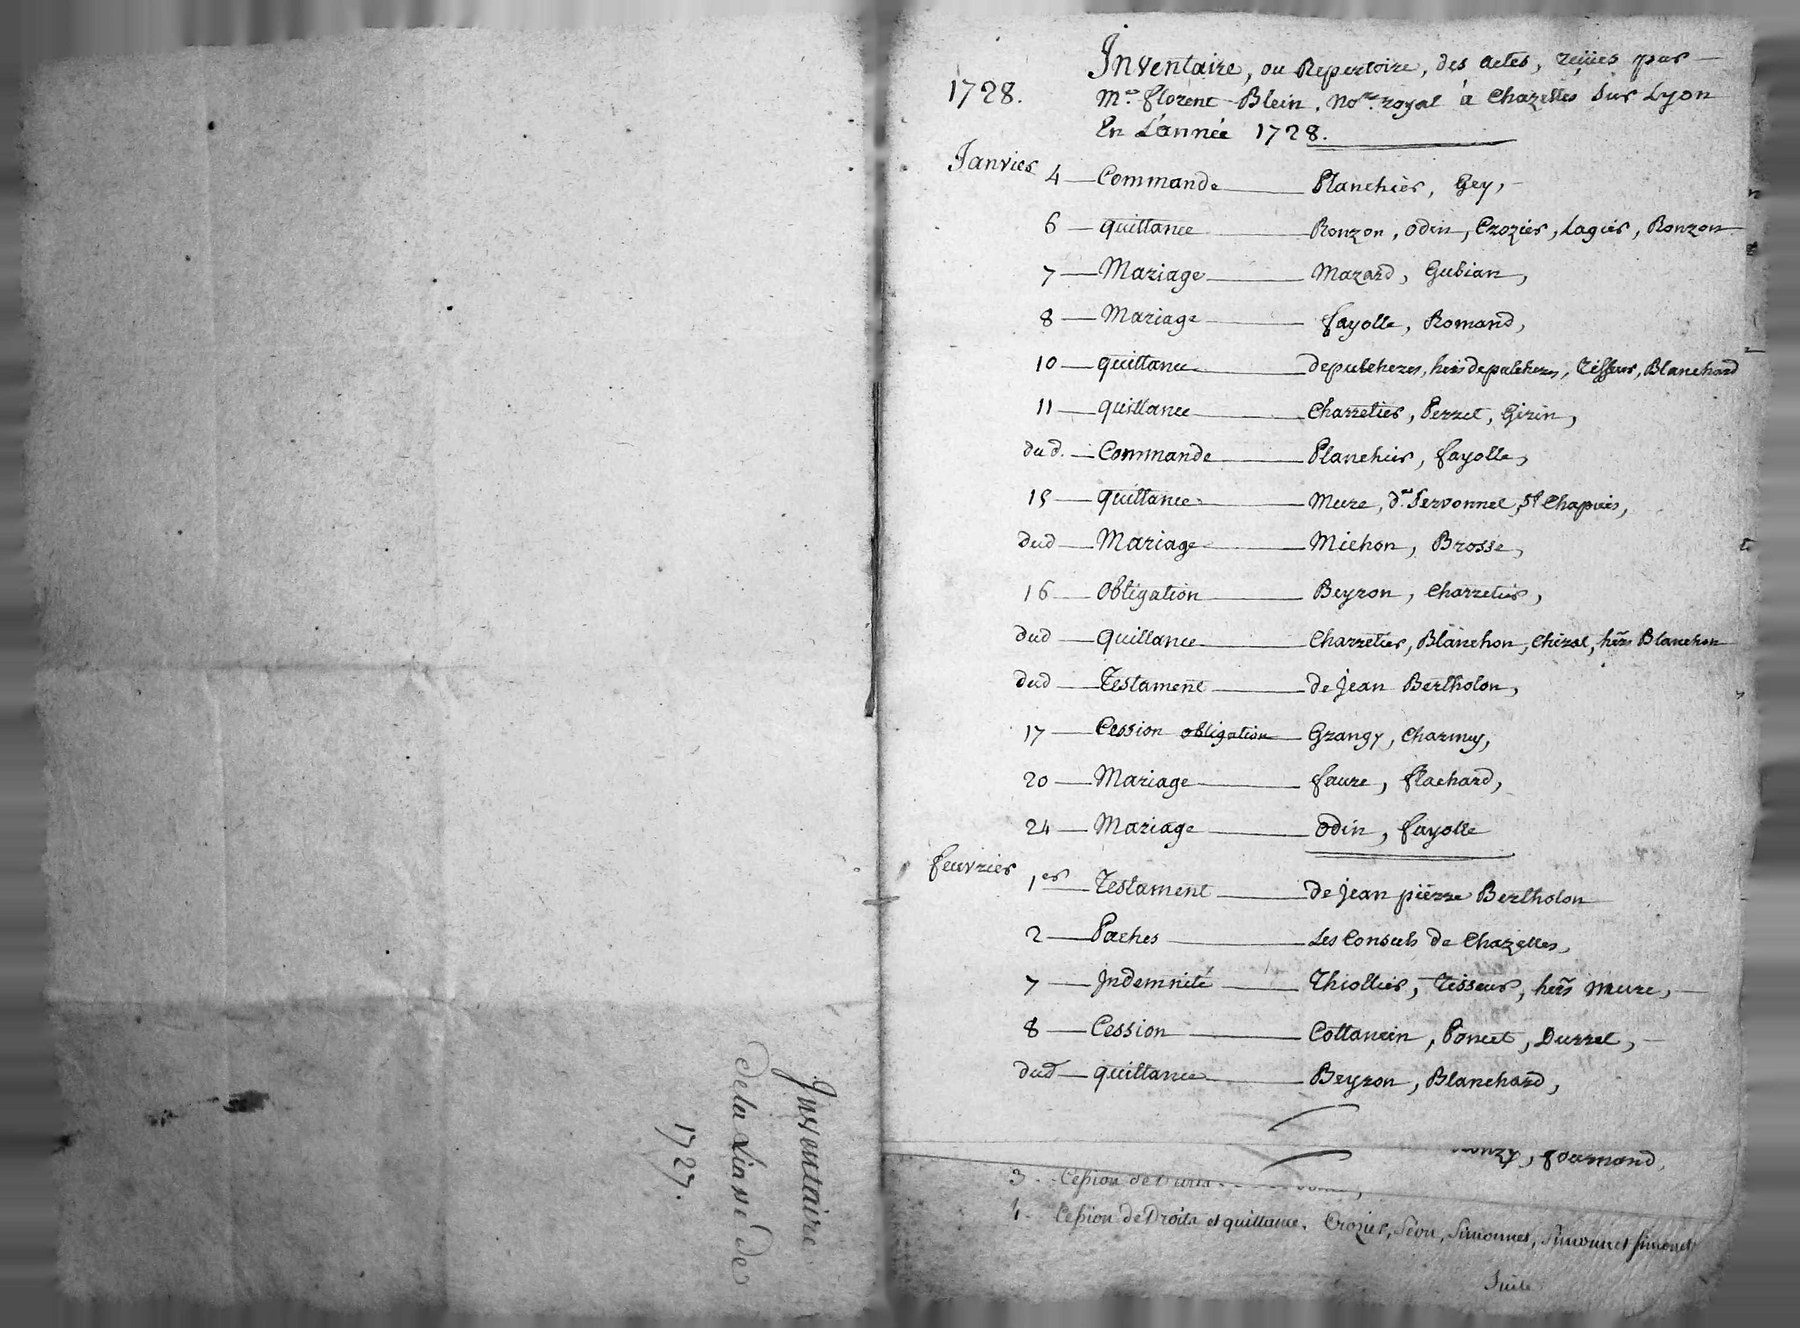 Inventaire
de la Liasse de
1727.
1728.
Inventaire, ou Repertoire, des actes, reçües par
Me. florent Blein, Nore. royal à Chazelles sur Lyon
En L'année 1728.
Janvier 4 — Commande — Planchier, Gey,
6 — quittance — Ronzon, Odin, Crozier, Lagier, Ronzon
7 — Mariage — Mazard, Gubian,
8 — Mariage — fayolle, Romand,
10 — quittance — depulcheres, hers depulcheres, Tisseur, Blanchard
11 — quittance — Charretier, Perret, Girin,
dud. — Commande — Planchier, fayolle,
15 — quittance — Mure, dlle Servonnet, St Chapuis,
dud — Mariage — Michon, Brosse,
16 — Obligation — Beyron, Charretier,
dud — quittance — Charretier, Blanchon, Chizal, hers Blanchon
dud — Testament — de jean Bertholon,
17 — Cession obligation — Grangy, Charmey,
20 — Mariage — faure, flachard,
24 — Mariage — Odin, fayolle
feuvrier 1er — Testament — de jean pierre Bertholon
2 — Paches — Les Consuls de Chazelles,
7 — Indemnité — Thiollier, Tisseur, hers Mure,
8 — Cession — Cottancin, Poncet, Durret,
dud — quittance — Beyron, Blanchard,
fourmond,
3. Cession de
4. Cession de Droits et quittance. Crozier, Séon, Simonnet, Simonnet simonet
Suite